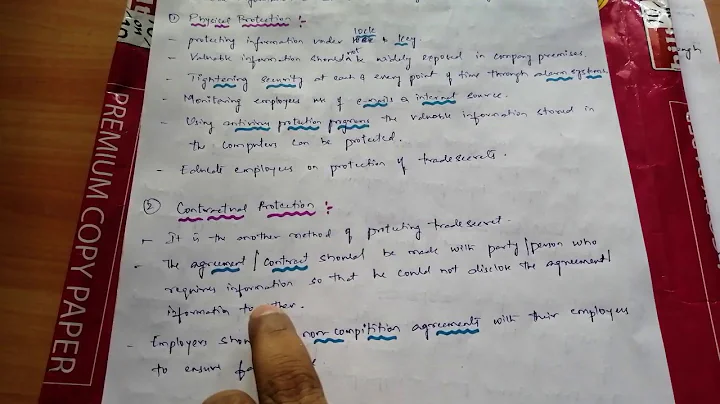 ① Physical Protection :-
lock
- protecting information under & key
not
- Valuable information should be widely exposed in company premises.
- Tightening security at each & every point of time through alarm systems.
- Monitoring employees use of emails & internet source.
- Using antivirus protection programs the valuable information stored in
the computers can be protected.
- Educate employees on protection of tradesecrets.
② Contractual Protection :-
- It is the another method of protecting tradesecret.
- The agreement / contract should be made with party / person who
requires information so that he could not disclose the agreement /
information to other.
- Employers non-compitition agreements with their employees
to ensure
PREMIUM COPY PAPER